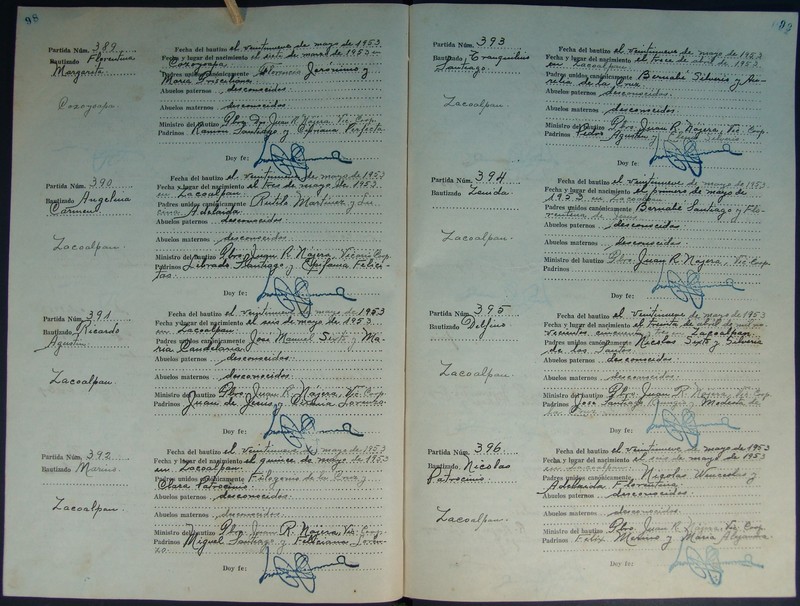 98
Partida Núm. 389
Bautizado Florentina
Margarita
Cozoyoapa.
Fecha del bautizo el veintinueve de mayo de 1953
Fecha y lugar del nacimiento el siete de marzo de 1953 en
Cozoyoapa.
Padres unidos canónicamente Florencio Jerónimo y
María
Abuelos paternos desconocidos
Abuelos maternos desconocidos
Ministro del bautizo Pbro. Don Juan R. Nájera, Vic. Coop.
Padrinos Ramón Santiago y Cipriana Perfecta.
Doy fe:
Partida Núm. 390
Bautizado Angelina
Carmen
Zacoalpan.
Fecha del bautizo el veintinueve de mayo de 1953
Fecha y lugar del nacimiento el tres de mayo de 1953
en Zacoalpan
Padres unidos canónicamente Rutilo Martínez y
Adelaida
Abuelos paternos desconocidos
Abuelos maternos desconocidos
Ministro del bautizo Pbro. Juan R. Nájera, Vicario Coop.
Padrinos Librado Santiago y Epifania
Doy fe:
Partida Núm. 391
Bautizado Ricardo
Agustín
Zacoalpan.
Fecha del bautizo el veintinueve de mayo de 1953
Fecha y lugar del nacimiento el seis de mayo de 1953
en Zacoalpan.
Padres unidos canónicamente José Manuel Sixto y Ma-
ría Candelaria
Abuelos paternos desconocidos
Abuelos maternos desconocidos
Ministro del bautizo Pbro. Juan R. Nájera, Vic. Coop.
Padrinos Juan de Jesús y Lorenza.
Doy fe:
Partida Núm. 392
Bautizado Marino.
Zacoalpan.
Fecha del bautizo el veintinueve de mayo de 1953
Fecha y lugar del nacimiento el quince de mayo de 1953
en Zacoalpan.
Padres unidos canónicamente Filogonio de la Cruz y
Clara Patrocinio
Abuelos paternos desconocidos
Abuelos maternos desconocidos
Ministro del bautizo Pbro. Juan R. Nájera, Vic. Coop.
Padrinos Miguel Santiago y Feliciana
Doy fe:
Partida Núm. 393
Bautizado Tranquilino
Santiago.
Zacoalpan.
Fecha del bautizo el veintinueve de mayo de 1953
Fecha y lugar del nacimiento el trece de abril de 1953
en Zacoalpan
Padres unidos canónicamente Bernabé Silverio y
de la Cruz
Abuelos paternos desconocidos
Abuelos maternos desconocidos
Ministro del bautizo Pbro. Juan R. Nájera, Vic. Coop.
Padrinos Pedro Agustín y
Doy fe:
Partida Núm. 394
Bautizado
Zacoalpan.
Fecha del bautizo el veintinueve de mayo de 1953
Fecha y lugar del nacimiento el primero de mayo de
1953 en Zacoalpan
Padres unidos canónicamente Bernabé Santiago y Flo-
rentina de Jesús
Abuelos paternos desconocidos
Abuelos maternos desconocidos
Ministro del bautizo Pbro. Juan R. Nájera, Vic. Coop.
Padrinos
Doy fe:
Partida Núm. 395
Bautizado Delfino
Zacoalpan.
Fecha del bautizo el veintinueve de mayo de 1953
Fecha y lugar del nacimiento el treinta de abril de mil no-
vecientos cincuenta y tres Zacoalpan
Padres unidos canónicamente Nicolás Sixto y Silveria
de los Santos
Abuelos paternos desconocidos
Abuelos maternos desconocidos
Ministro del bautizo Pbro. Juan R. Nájera, Vic. Coop.
Padrinos José Santiago y Modesta de
la Cruz
Doy fe:
Partida Núm. 396
Bautizado Nicolás
Patrocinio
Zacoalpan.
Fecha del bautizo el veintinueve de mayo de 1953
Fecha y lugar del nacimiento el seis de mayo de 1953
en Zacoalpan
Padres unidos canónicamente Nicolás Wenceslao y
Adelaida Florentina
Abuelos paternos desconocidos
Abuelos maternos desconocidos
Ministro del bautizo Pbro. Juan R. Nájera, Vic. Coop.
Padrinos Félix Merino y María Alejandra.
Doy fe: